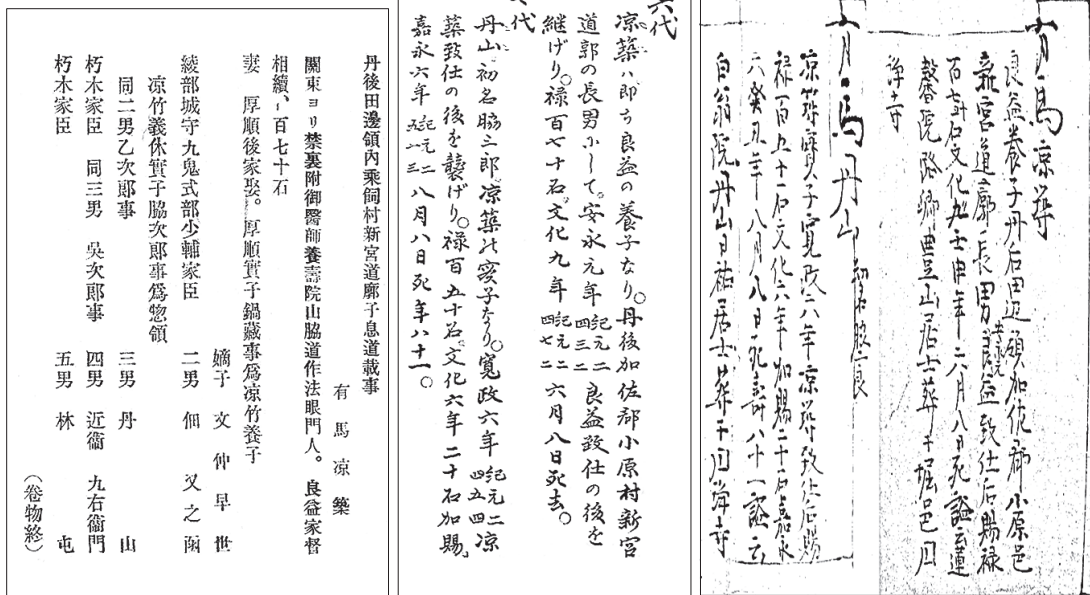 有馬凉築
良益養子丹后田辺領加佐郡小原邑
新宮道廓長男安永元良益致仕后賜禄
百七十石文化九壬申年六月八日死謚云蓮
馨院 豊山居士葬于堀邑円
浄寺
有馬丹山 初名脇三良
凉築實子寛政六年凉築致仕后賜
禄百五十一石文化六年加賜二十石嘉永
六癸丑年八月八日死壽八十一謚云
自翁院丹山日祐居士葬于円常寺
六代
凉築ハ即ち良益の養子なり。丹後加佐郡小原村新宮
道郭の長男にして。安永元年紀元二四三二良益致仕の後を
継げり。禄百七十石。文化九年紀元二四七二六月八日死去。
代
丹山。初名脇三郎。凉築の實子なり。寛政六年紀元二四五四凉
築致仕の後を襲げり。禄百五十石。文化六年二十石加賜。
嘉永六年紀元二五一三八月八日死年八十一。
丹後田邊領內乘飼村新宮道廓子息道載事
有馬凉築
關東ヨリ禁裏附御醫師養壽院山脇道作法眼門人。良益家督
相續、百七十石
妻 厚順後家娶。厚順實子鍋藏事爲凉竹養子
嫡子 文仲早世
綾部城守九鬼式部少輔家臣 二男 佃 又之函
凉竹義休實子脇次郞事爲惣領
同二男乙次郞事 三男 丹山
朽木家臣 同三男 吳次郞事 四男 近衞 九右衞門
朽木家臣 五男 林 屯
(卷物終)